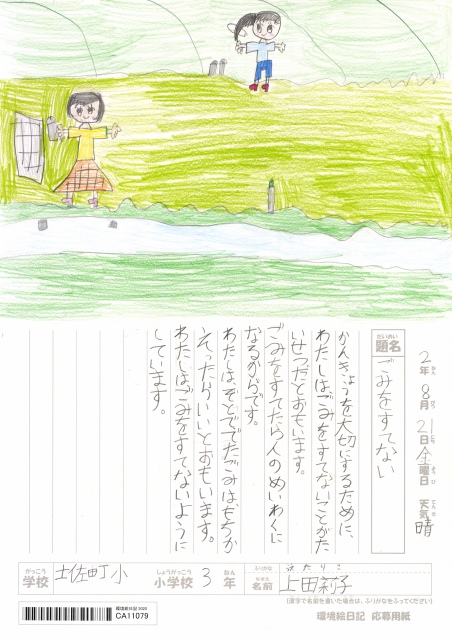 2年8月21日金曜日 天気 晴
だいめい
題名
ごみをすてない
かんきょうを大切にするために、
わたしは、ごみをすてないことがた
いせつだとおもいます。
ごみをすてたら人のめいわくに
なるからです。
わたしは、そとででたごみは、もちか
えったがいいとおもいます。
わたしは、ごみをすてないように
しています。
がっこう
学校
土佐町小
しょうがっこう
小学校
3
ねん
年
ふりがな
なまえ
名前
上田莉子
(漢字で名前を書いた場合は、ふりがなをふってください)
環境絵日記 応募用紙
環境絵日記 2020
CA11079